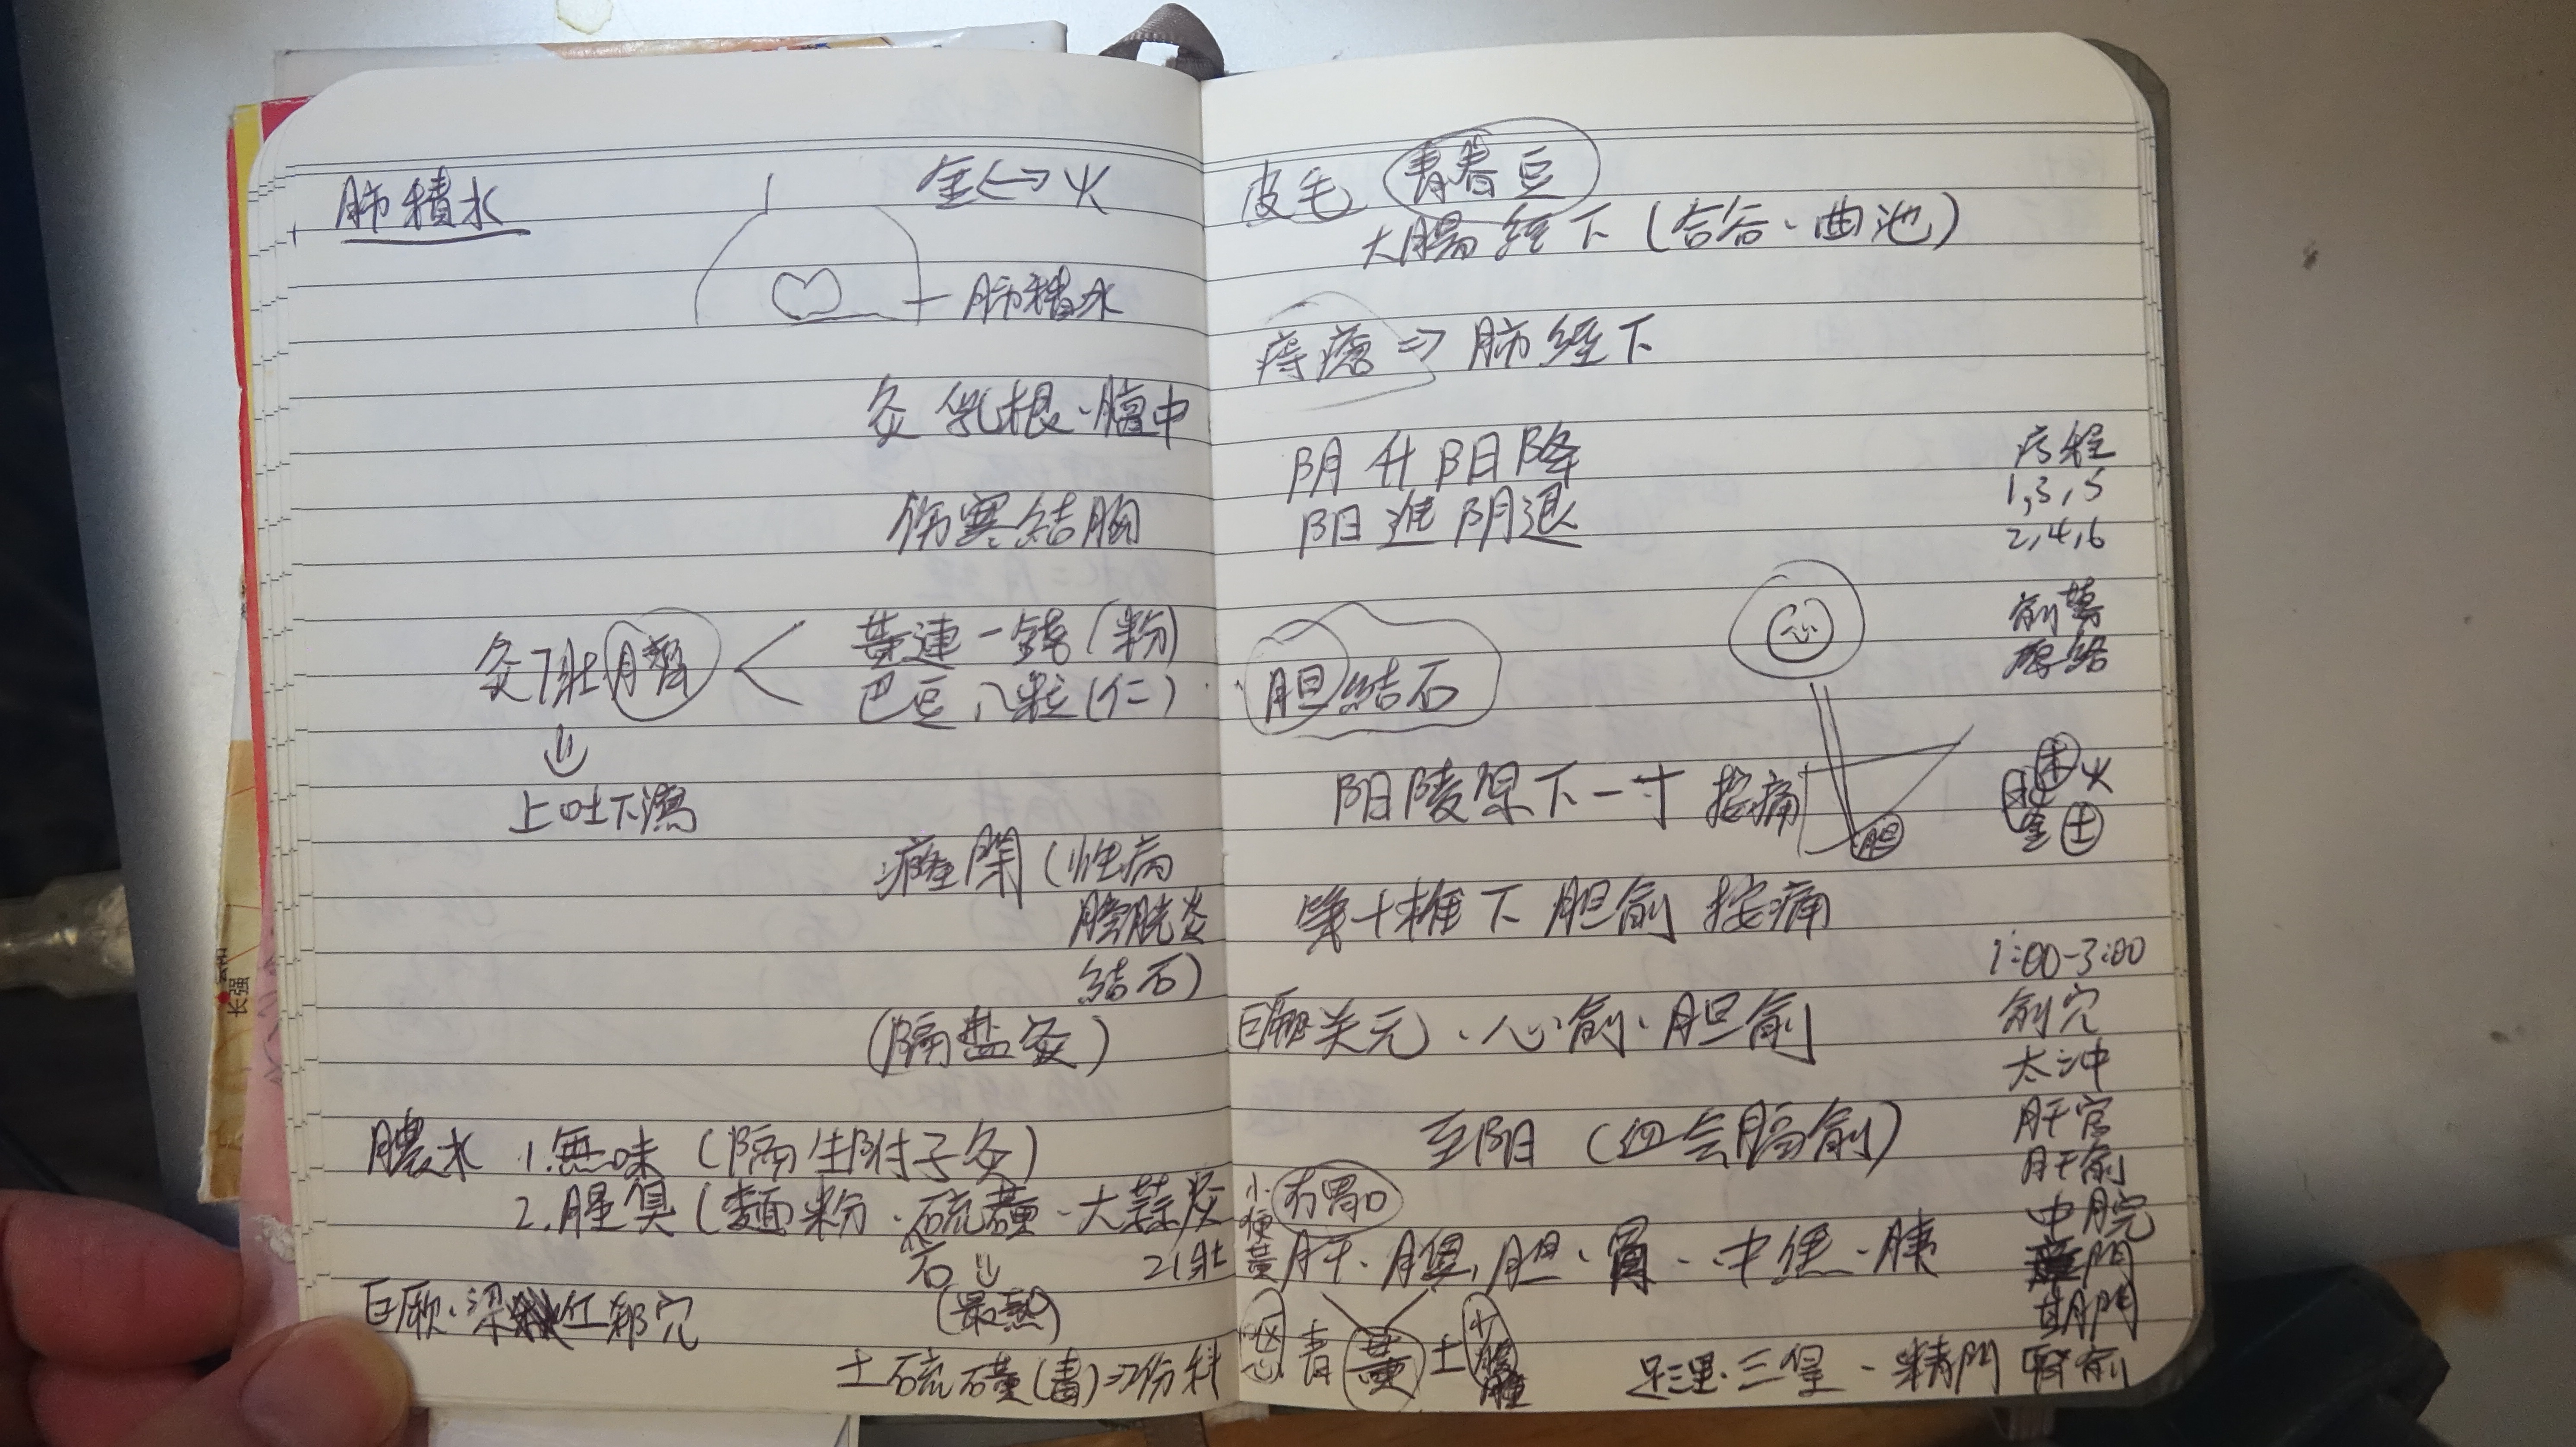 肺積水
金⇔火
肺積水
灸 乳根、膻中
伤寒結胸
灸7壯 臍
黄連一錢(粉)
巴豆八粒(仁)
⇓
上吐下瀉
癃閉(性病
膀胱炎
結石)
(隔盐灸)
膿水 1.無味(隔生附子灸)
2.腥臭(麵粉、硫黃、大蒜灸
石 ⇓ 21壯
(最熱)
巨厥、梁 郄穴
土硫磺(毒)⇒份料
长强
皮毛 青春豆
大腸經下(合谷、曲池)
痔瘡⇒肺經下
阴升阳降
阳進阴退
病程
1,3,5
2,4,6
俞募
原絡
心
胆結石
阳陵泉下一寸 按痛
胆
木火
金土
第十椎下 胆俞 按痛
1:00-3:00
巨厥关元)、心俞、胆俞
俞穴
太冲
至阴(四会膈俞)
肝官
肝俞
小 有胃口
中脘
肝、脾、胆、胃、中焦、胰
門
期門
怒 青 黄 土
足三里、三皇、精門 腎俞